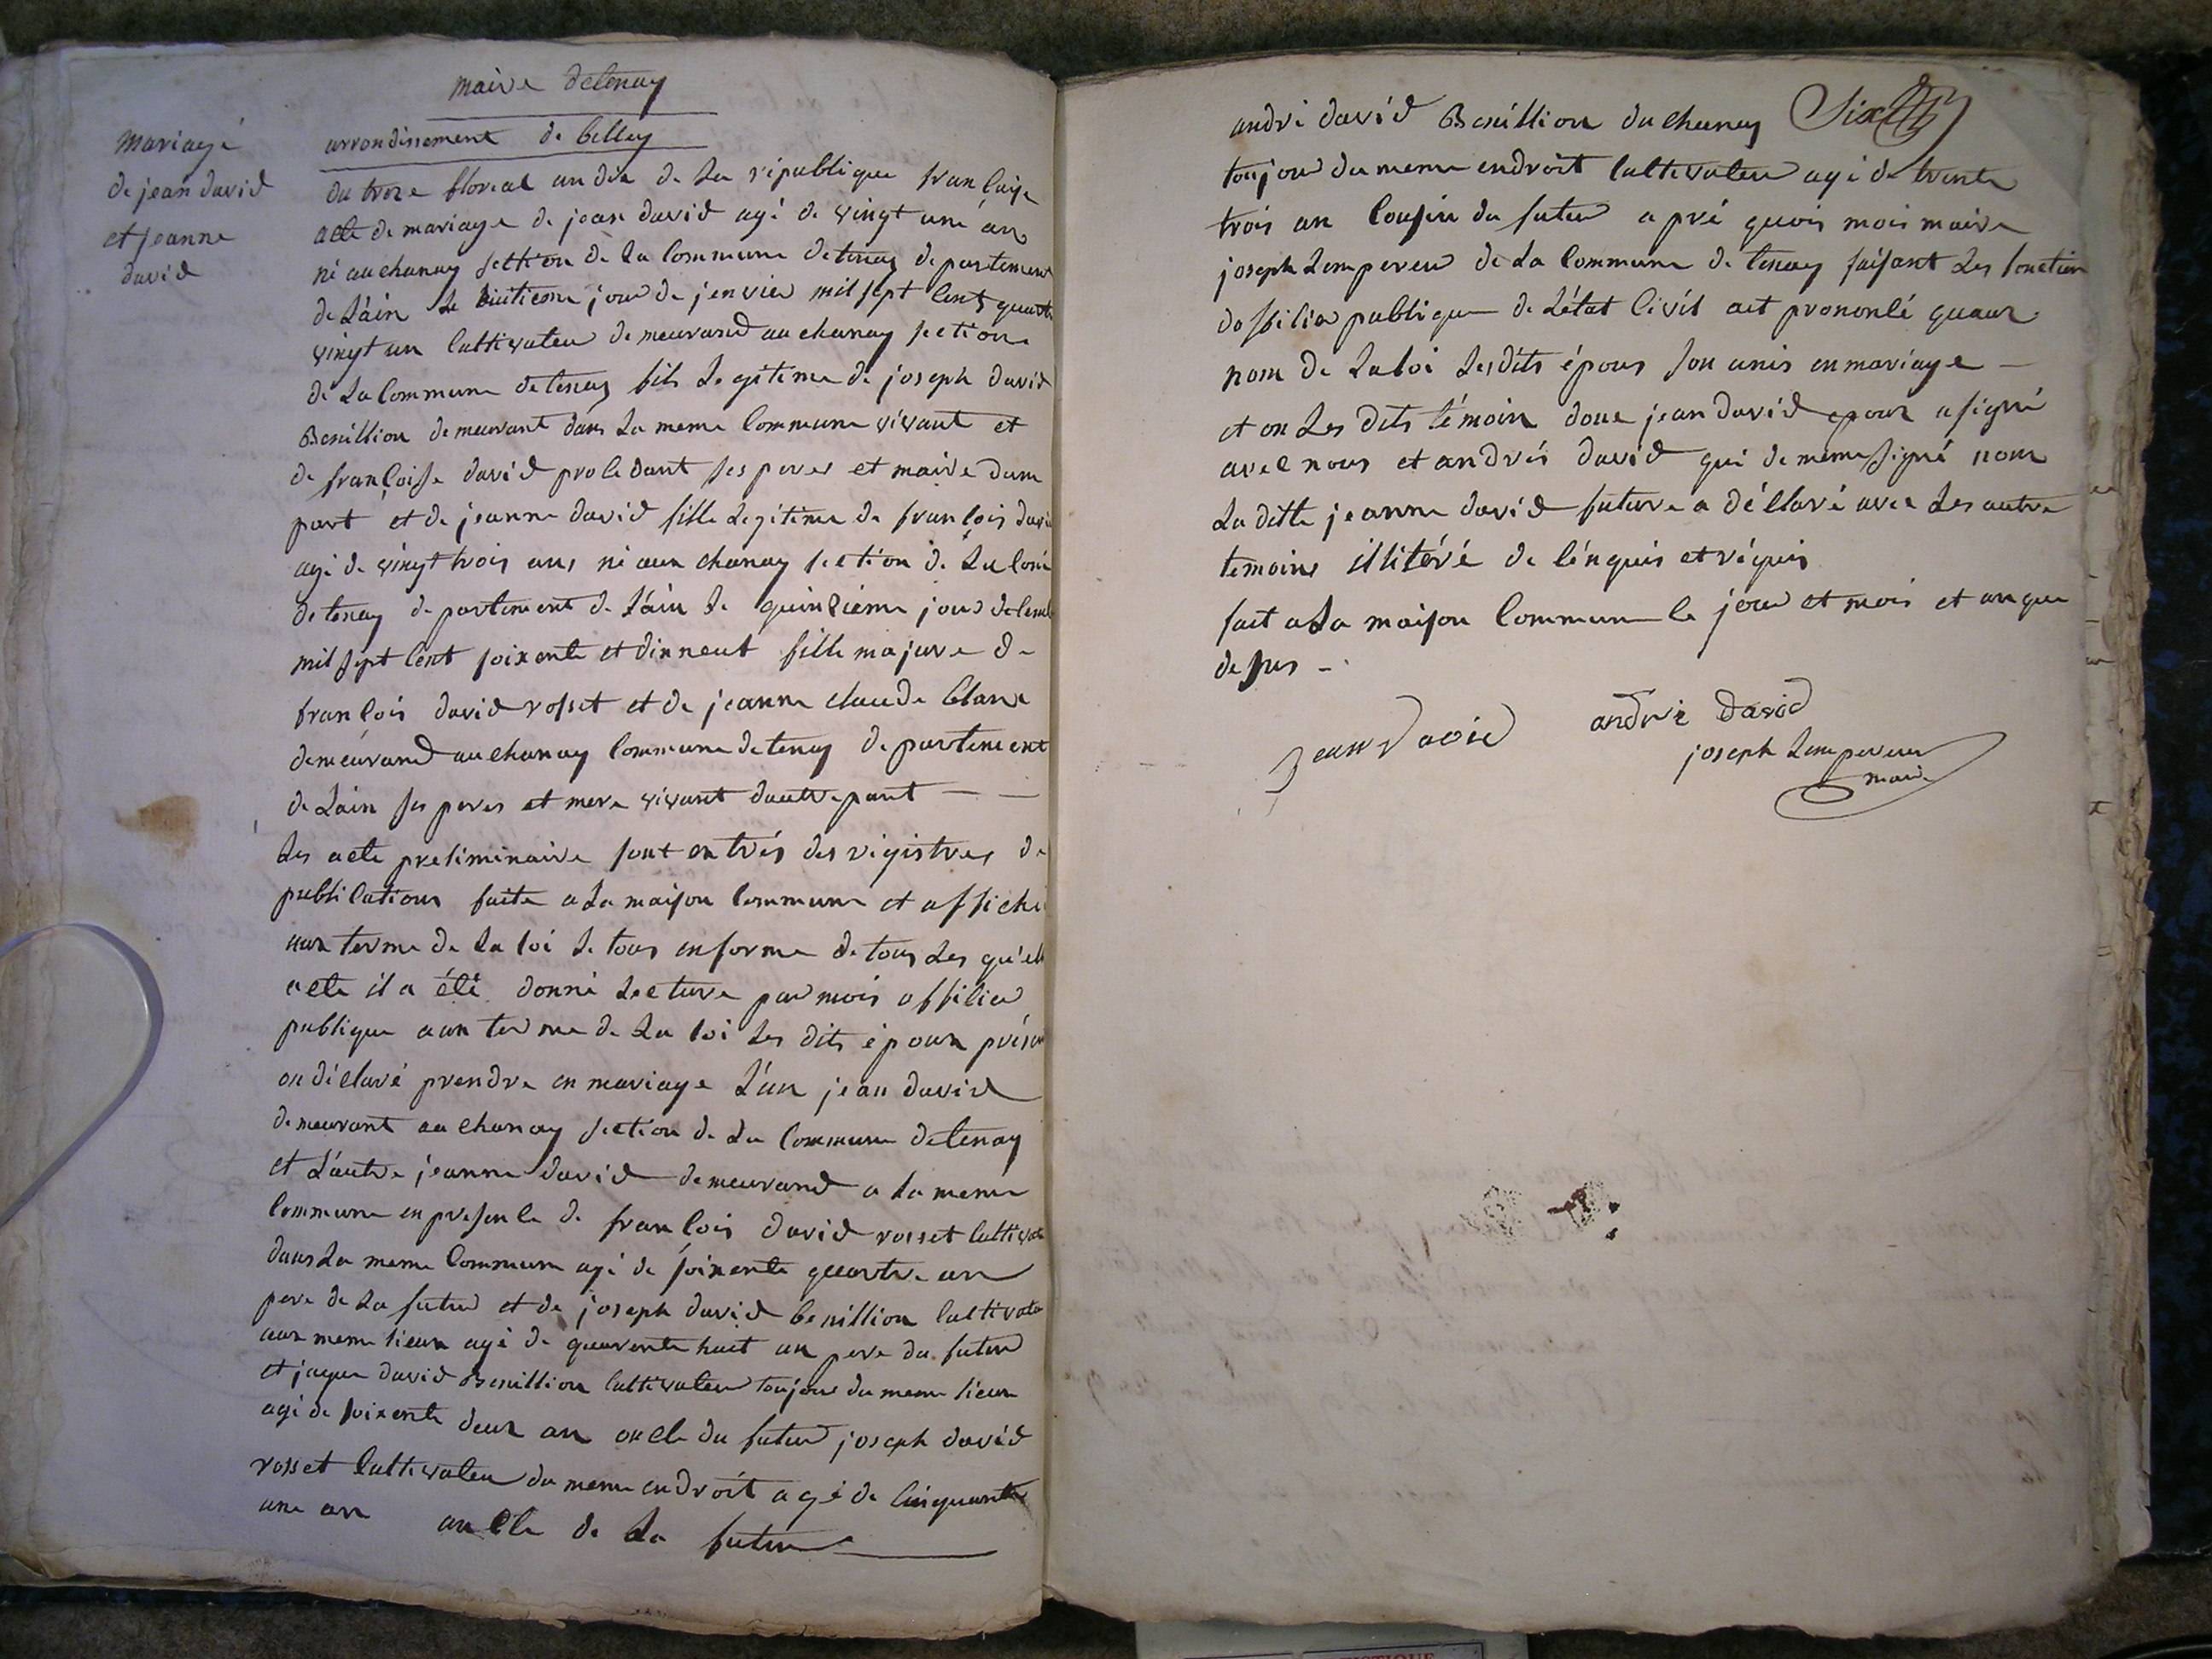 maire detenay
mariage
de jean david
et jeanne
david
arrondissement de belley
du treze floreal an dix de La république francaise
acte de mariage de jean david agé de vingt une an
né au chanay section de La Commune detenay departement
de L'ain Le huitieme jour de jenvier mil sept Cent quart
vingt un Cultivateu demeurand au chanay section
de La Commune detenay fils Legitime de joseph david
Benillion demeurant dans La meme Commune vivant et
de francoisse david procedant ses peres et maire dune
part et de jeanne david fille Legitime de francois davi
agé de vingt trois ans né aux chanay section de La Com
de tenay departement de L'ain Le quinzieme jour
mil sept Cent soixente et dixneut fille majure de
francois david rosset et de jeanne claude blanc
demeurand au chanay Commune de tenay departement
de Lain ses peres et mere vivant dautre part
Les acte preliminaire sont extrés des régistres de
publications faite a La maison Commune et affiché
aux terme de La loi Le tous enforme de tous Les qu'el
acte il a été donné Lecture par mois officier
publique aux terme de La loi Les dits époux présen
on déclaré prendre en mariage L'un jean david
demeurant au chanay section de La Commune detenay
et L'autre jeanne david demeurand a La meme
Commune en presence de francois david rosset Cultivate
dans La meme Commune agé de soixente quartre an
pere de La futur et de joseph david benillion Cultivate
aux meme lieux agé de quarente huit an pere du futur
et jaque david Benillion Cultivateu toujour du meme lieux
agé de soixente deux an oncle du futur joseph david
rosset Cultivateu du meme endroit agé de Cinquante
une an oncle de La futur
andré david Benillion du chanay Six
toujour du meme endroit Cultivateu agé de trente
trois an Cousin du futur a pré quois mois maire
joseph Lempereur de La Commune de tenay faisant Les fonction
dofficier publique de L'état Civil aet prononcé quaux
nom de La loi Lesdits épous son unis en mariage
et on Les dits témoin done jean david epoux a signé
avec nous et andrés david qui de meme signé nom
La ditte jeanne david future a déllaré avec Les autre
temoins illitéré de lénquis et réquis
fait a La maison Commune le jour et mois et an que
desus
jean david
andré david
joseph Lempereur
maire